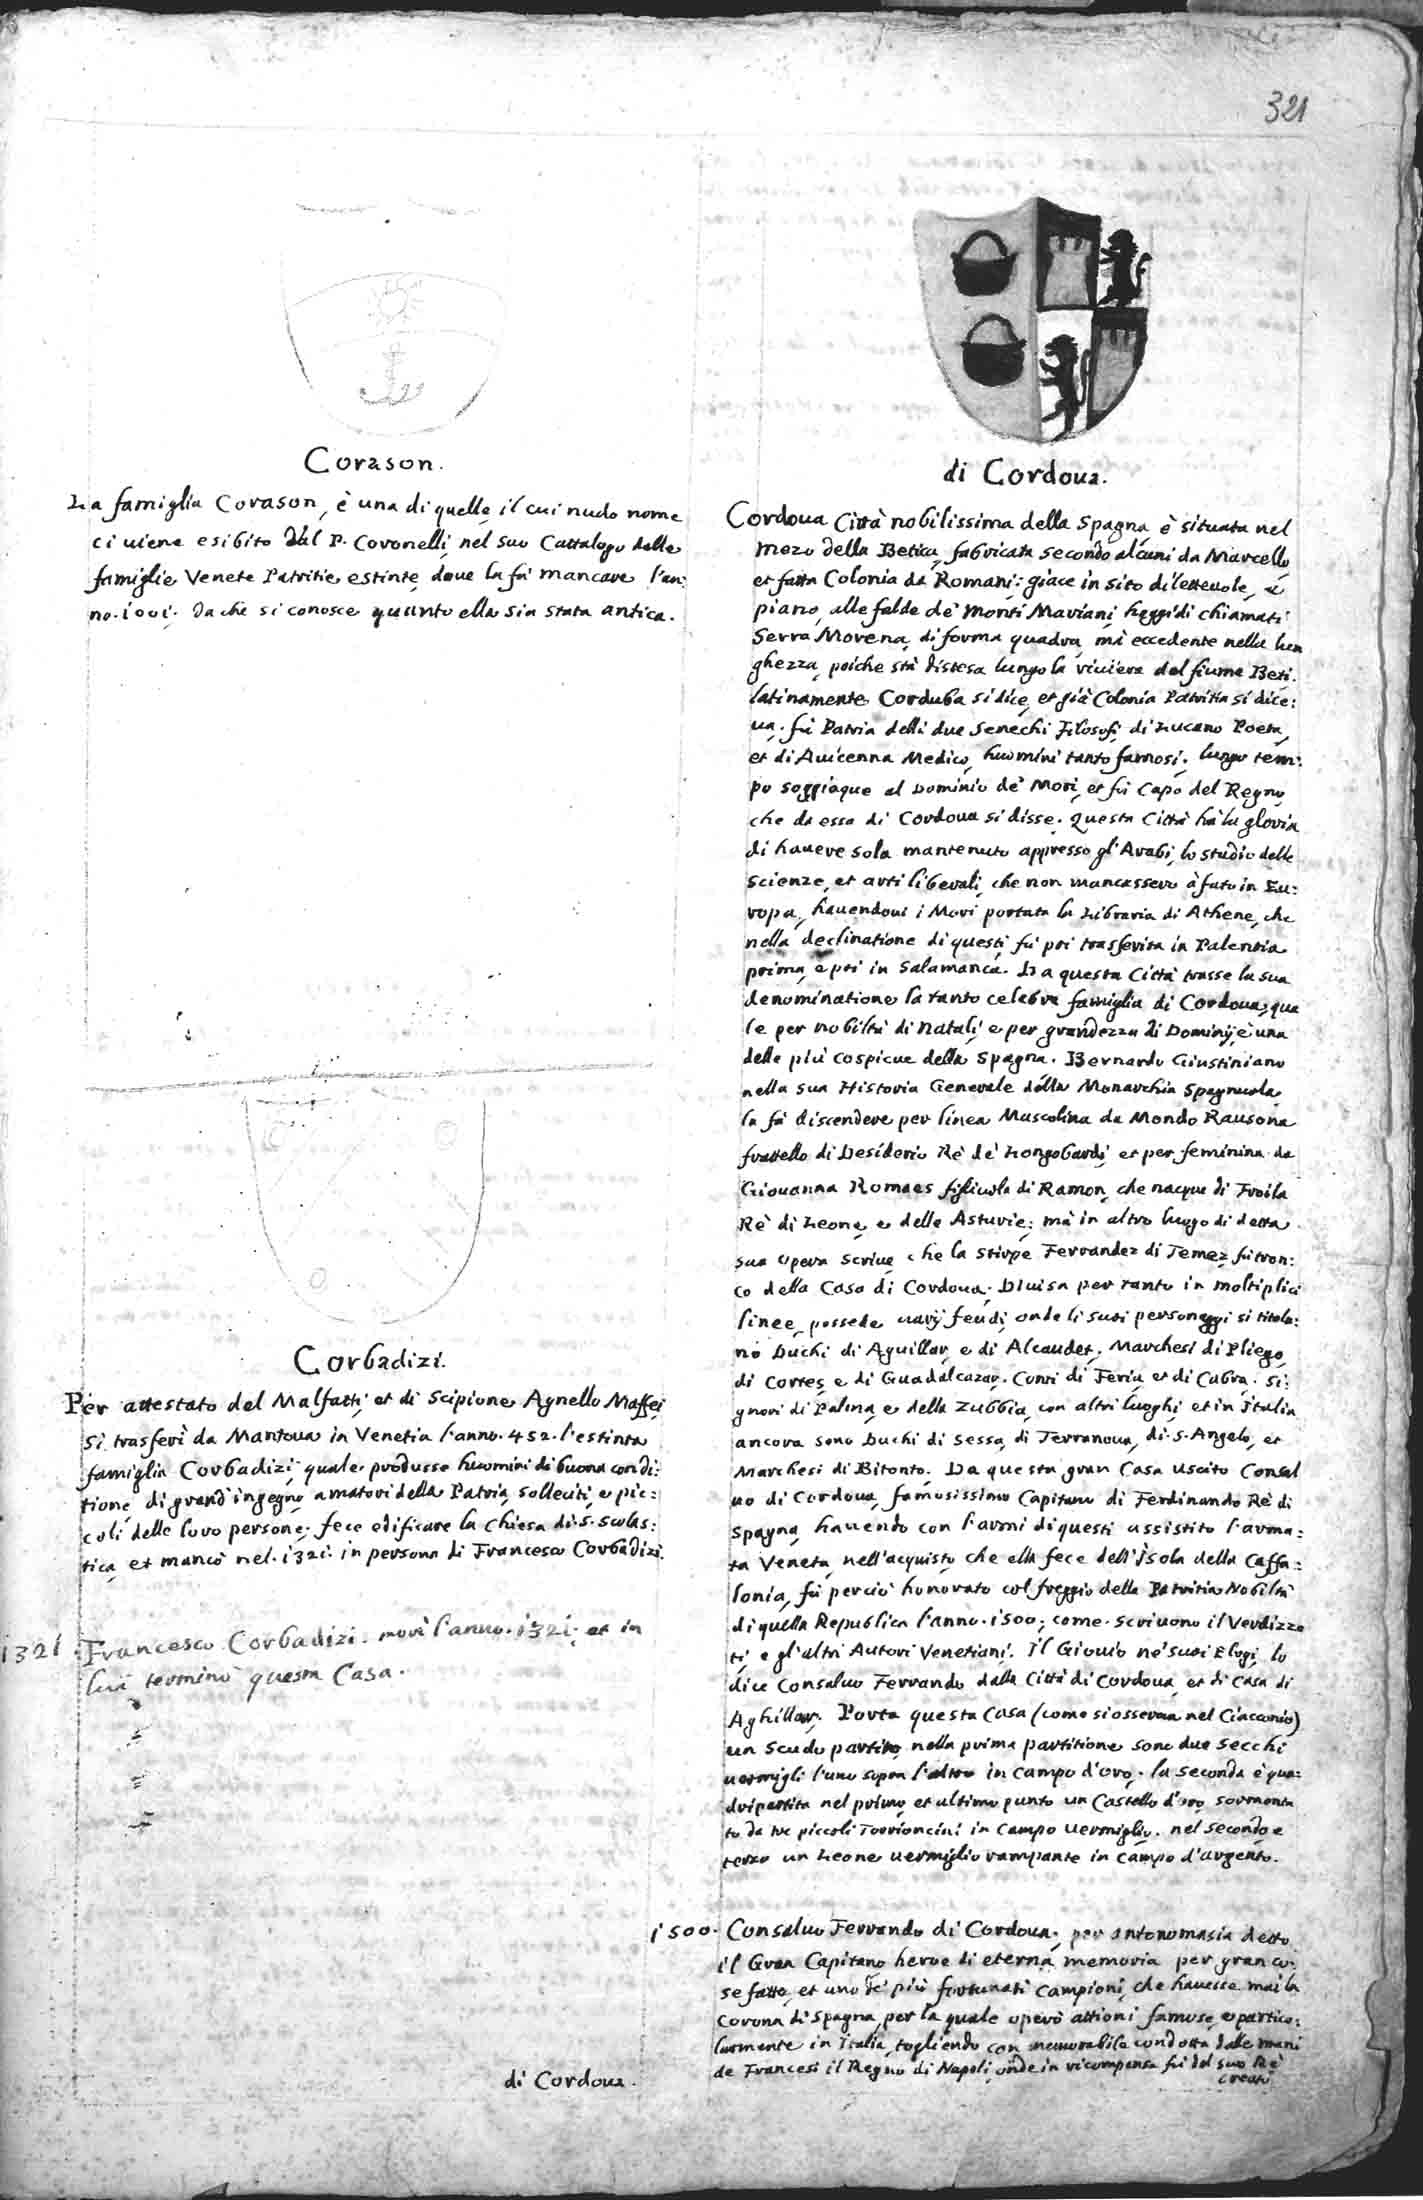 321
Corason.
La famiglia Corason, è una di quelle, il cui nudo nome
ci uiene esibito dal P. Coronelli, nel suo Cattalogo delle
famiglie Venete Patritie estinte, doue la fà mancare l'an:
no. 1001. da che si conosce quanto ella sia stata antica.
Corbadizi.
Per attestato del Malfatti, et di Scipione Agnello Maffei
si trasferì da Mantoua in Venetia l'anno. 452. l'estinta
famiglia Corbadizi, quale produsse huomini di buona condi:
tione, di grand'ingegno, amatori della Patria, solleciti, e pic:
coli delle loro persone; fece edificare la Chiesa di. S. Scolas:
tica, et mancò nel. 1321. in persona di Francesco Corbadizi.
1321 Francesco Corbadizi. morì l'anno. 1321. et in
lui terminò questa Casa.
di Cordoua.
di Cordoua.
Cordoua Città nobilissima della Spagna, è situata nel
mezo della Betica, fabricata secondo alcuni da Marcello,
et fatta Colonia da Romani: giace in sito diletteuole, e
piano, alle falde de' Monti Mariani, heggidi chiamati
Serra Morena, di forma quadra, mà eccedente nella lun
ghezza, poiche stà distesa lungo la riuiera del fiume Beti.
latinamente Corduba si dice, et già Colonia Patritia si dice:
ua. fù Patria delli due Senechi Filosofi, di Lucano Poeta,
et di Auicenna Medico, huomini tanto famosi. lungo tem:
po soggiaque al Dominio de' Mori, et fù Capo del Regno,
che da essa di Cordoua si disse. Questa Città hà la gloria
di hauere sola mantenuto appresso gl'Arabi, lo studio delle
scienze, et arti liberali, che non mancassero à fato in Eu:
ropa, hauendoui i Mori portata la Libraria di Athene, che
nella declinatione di questi fù poi trasferita in Palentia
prima, e poi in Salamanca. Da questa Città trasse la sua
denominatione la tanto celebre famiglia di Cordoua, qua
le per nobiltà di natali, e per grandezza di Dominij, è una
delle più cospicue della Spagna. Bernardo Giustiniano
nella sua Historia Generale della Monarchia Spagnuola,
la fà discendere per linea Mascolina da Mondo Rausona
fratello di Desiderio Rè de' Longobardi, et per feminina da
Giouanna Romaes figliuola di Ramon, che nacque di Froila
Rè di Leone, e delle Asturie; mà in altro luogo di detta
sua opera scriue, che la stirpe Ferrandez di Temez, fù tron:
co della Casa di Cordoua. Diuisa per tanto in moltiplici
linee, possede uarij feudi, onde li suoi personaggi si titola:
no Duchi di Aguillar, e di Alcaudet, Marchesi di Pliego,
di Cortes, e di Guadalcazar, Conti di Feria, et di Cabra. Si:
gnori di Palma, e della Zubbia, con altri luoghi, et in Italia
ancora sono Duchi di Sessa, di Terranoua, di. S. Angelo, et
Marchesi di Bitonto. Da questa gran Casa uscito Consal
uo di Cordoua, famosissimo Capitano di Ferdinando Rè di
Spagna, hauendo con l'armi di questi assistito l'arma:
ta Veneta, nell'acquisto, che ella fece dell'Isola della Caffa:
lonia, fù perciò honorato col freggio della Patritia Nobiltà
di quella Republica l'anno. 1500, come scriuono il Verdizzo
ti, e gl'altri Autori Venetiani. Il Giouio ne' suoi Elogi, lo
dice Consaluo Ferrando dalla Città di Cordoua, et di Casa di
Aghillar. Porta questa Casa (come si osserua nel Ciacconio)
un Scudo partito, nella prima partitione sono due secchi
uermigli l'uno sopra l'altro in campo d'oro. la seconda è qua:
dripartita nel primo, et ultimo punto un Castello d'oro sormonta
to da tre piccoli Torrioncini in Campo uermiglio. nel secondo e
terzo un Leone uermiglio rampante in Campo d'argento.
1500. Consaluo Ferrando di Cordoua, per antonomasia detto
il Gran Capitano heroe di eterna memoria per gran co:
se fatte, et uno de' più fortunati Campioni, che hauesse mai la
Corona di Spagna, per la quale operò attioni famose, e partico:
larmente in Italia, togliendo con memorabile condotta dalle mani
de Francesi il Regno di Napoli, onde in ricompensa fù dal suo Rè
creato